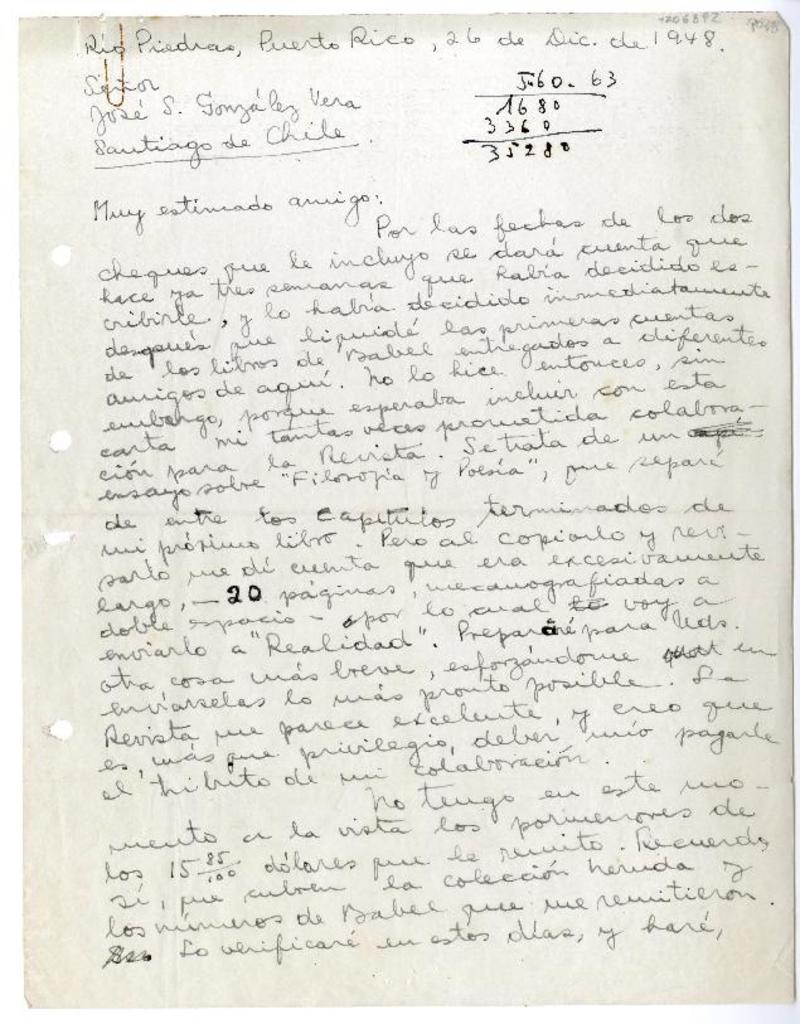 Río Piedras, Puerto Rico, 26 de Dic. de 1948.
Señor
José S. González Vera
Santiago de Chile.
5.60. 63
1680
3360
35280
Muy estimado amigo:
Por las fechas de los dos
cheques que le incluyo se dará cuenta que
hace ya tres semanas que había decidido es-
cribirle, y lo había decidido inmediatamente
después que liquidé las primeras cuentas
de los libros de Babel entregados a diferentes
amigos de aquí. No lo hice entonces, sin
embargo, porque esperaba incluir con esta
carta mi tantas veces prometida colabora-
ción para la Revista. Se trata de un
ensayo sobre "Filosofía y Poesía", que separé
de entre los capítulos terminados de
mi próximo libro. Pero al copiarlo y revi-
sarlo me dí cuenta que era excesivamente
largo, - 20 páginas, mecanografiadas a
doble espacio - por lo cual voy a
enviarlo a "Realidad". Prepararé para Uds.
otra cosa más breve, esforzándome en
enviárselas lo más pronto posible. La
Revista me parece excelente, y creo que
es, más que privilegio, deber mío pagarle
el tributo de mi colaboración.
No tengo en este mo-
mento a la vista los pormenores de
los 15 85/100 dólares que le remito. Recuerdo,
sí, que cubren la colección Neruda y
los números de Babel que me remitieron.
Lo verificaré en estos días, y haré,